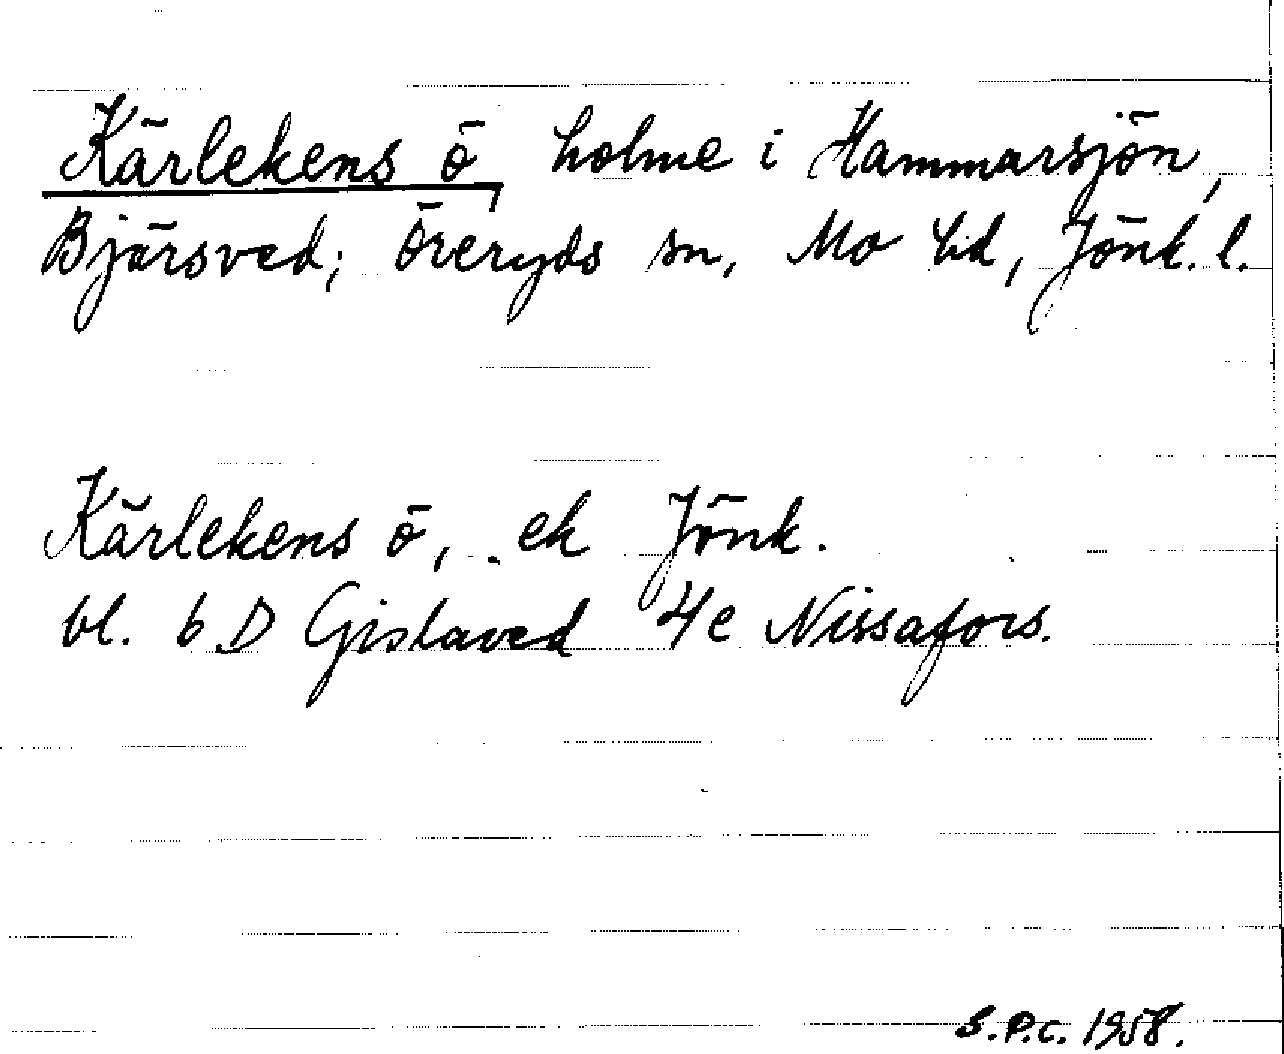 Kärlekens ö, holme i Hammarsjön,
Bjärsved; Öreryds sn, Mo hd, Jönk. l.
Kärlekens ö, ek Jönk.
bl. 6 D Gislaved 4 e Nissafors.
S.P.C. 1958.